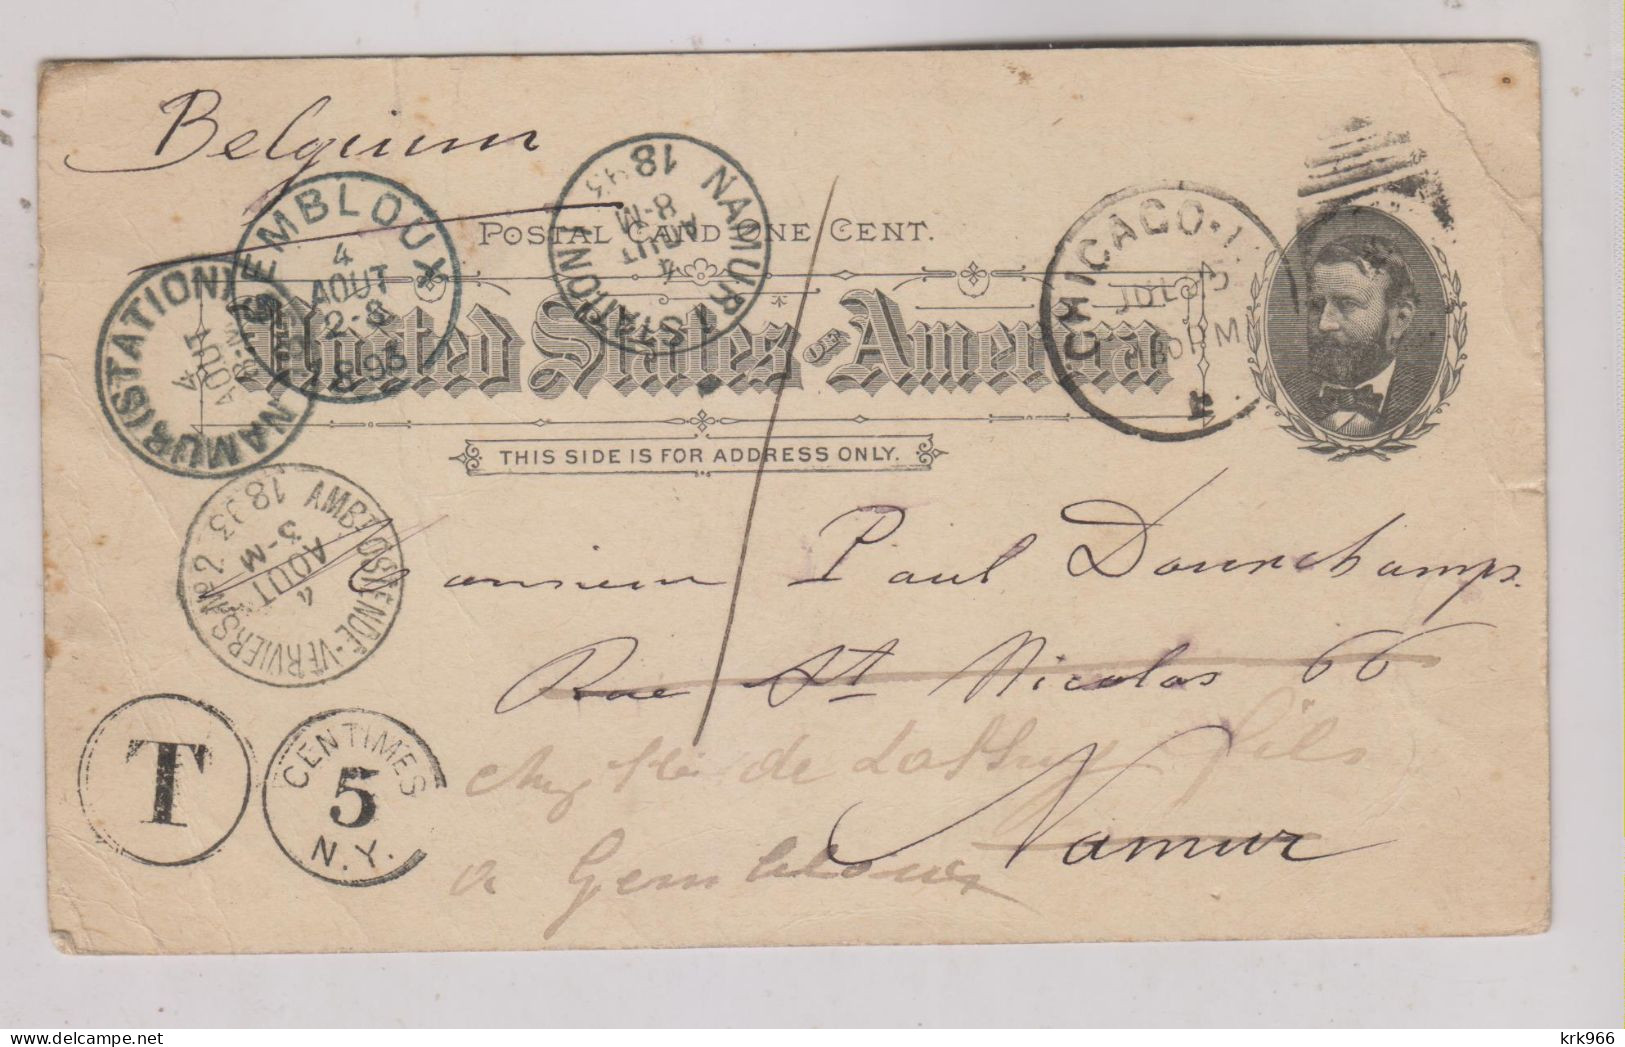 Belgium
POSTAL CARD ONE CENT.
United States OF America
THIS SIDE IS FOR ADDRESS ONLY.
GEMBLOUX
4
AOUT
2-8
1893
NAMUR (STATION)
4
AOUT
8-M
1893
NAMUR (STATION)
4
AOUT
8-M
CHICAGO
AMBT OSTENDE-VERVIERS Nº 2
4
AOUT
3-M
1893
Monsieur Paul Dourchamps.
Rue St Nicolas 66
Namur
de fils
a Gembloux
T
CENTIMES
5
N.Y.
krk966